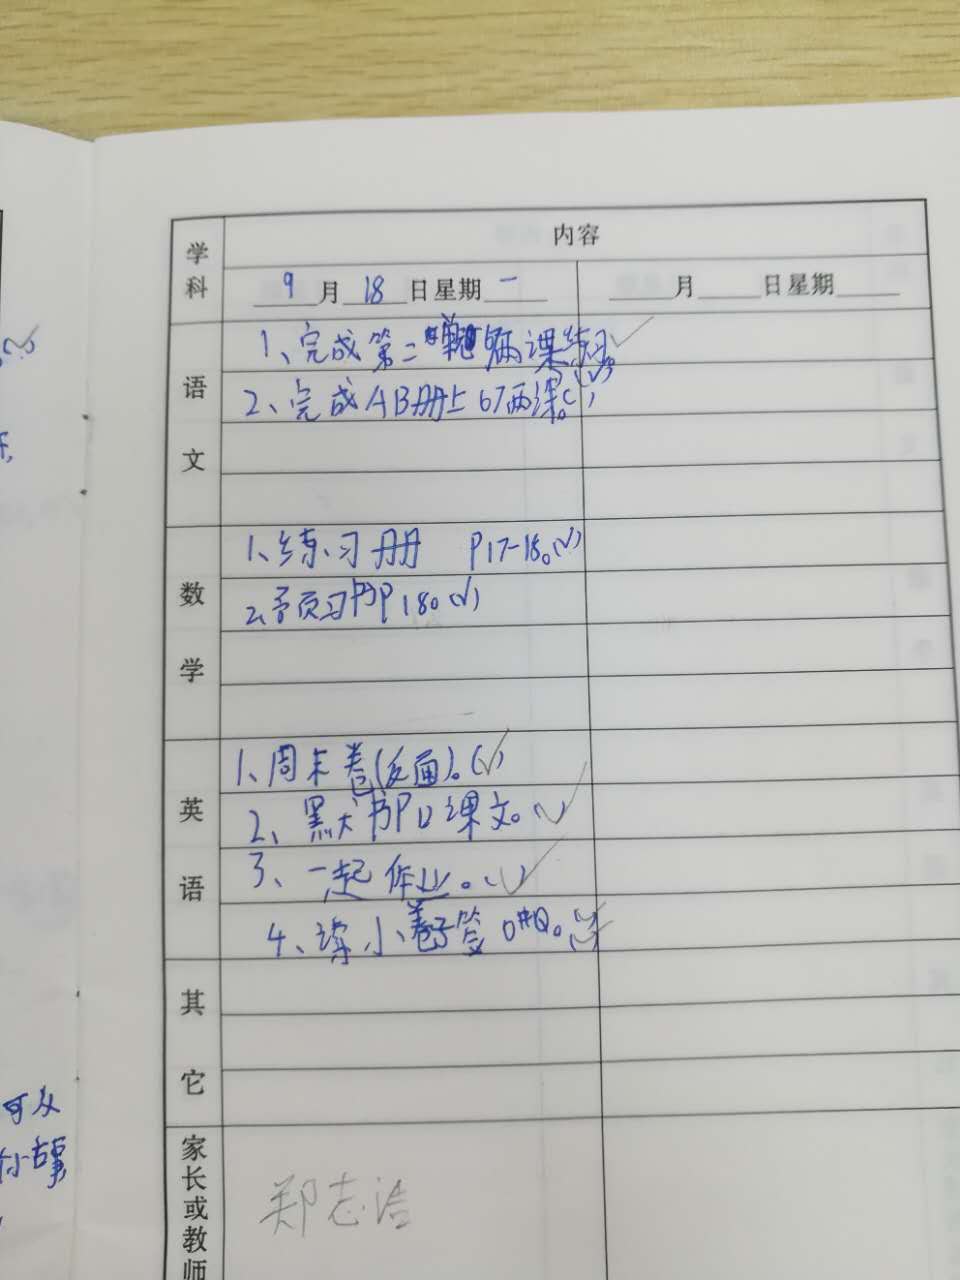 学科 内容
9月18日星期一 月 日星期
语文
1、完成第二单元 两课练习。
2、完成AB册上67两课。(√)
数学
1、练习册 P17-18。(√)
2、预习书P18。(√)
英语
1、周末卷(反面)。(√)
2、默书P12课文。(√)
3、一起作业。(√)
4、读小卷子签
其它
家长或教师
郑志洁
可从